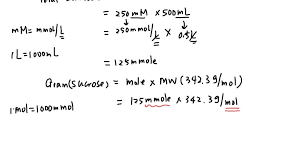 = 250 mM × 500mL
mM = mmol/L
= 250 mmol/L × 0.5L
1L = 1000mL
= 125 mmole
Gram(sucrose) = mole × MW (342.39/mol)
1 mol = 1000 mmol
= 125 mmole × 342.39/mol